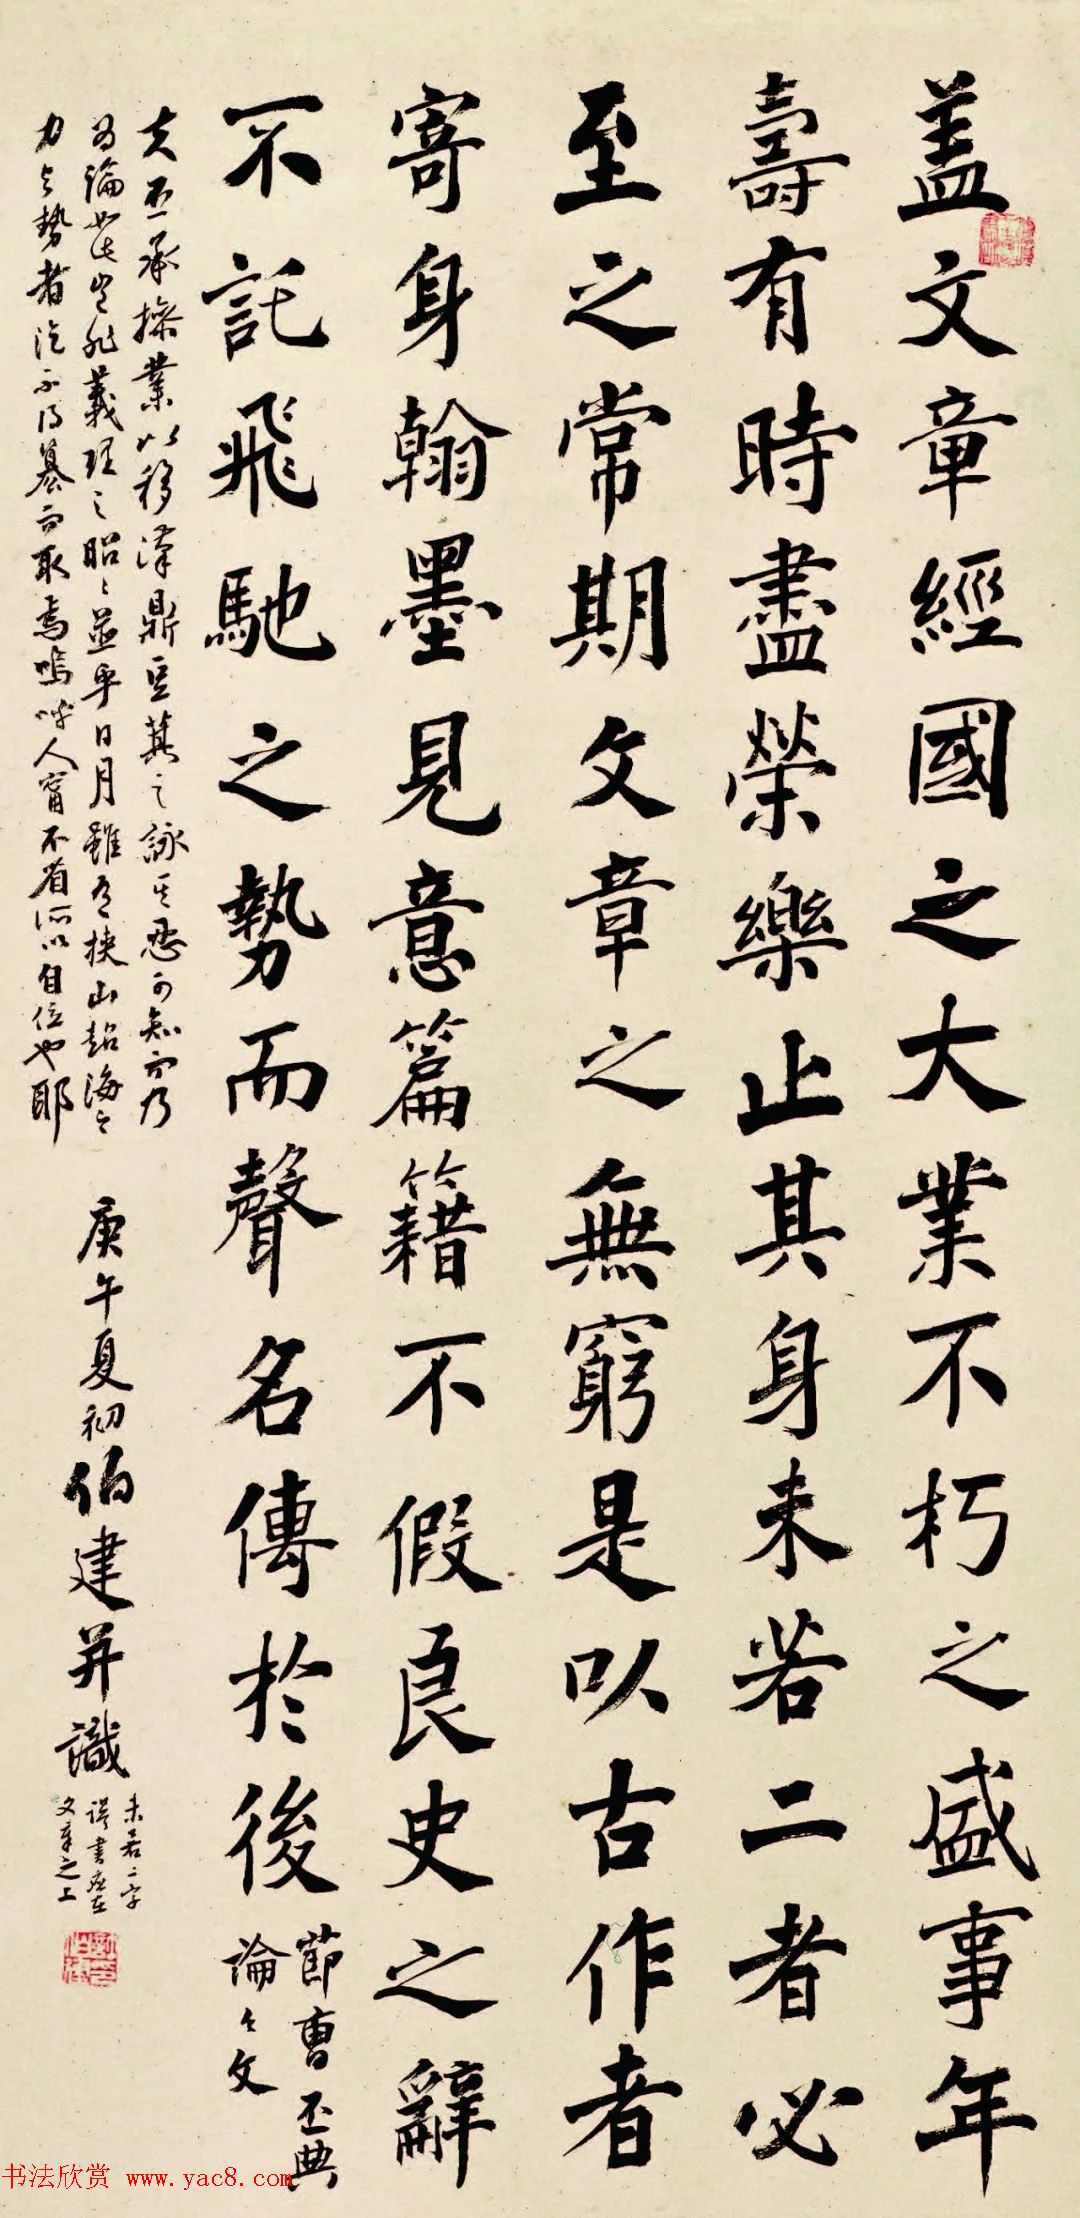 盖文章經國之大業不朽之盛事年
壽有時盡榮樂止其身未若二者必
至之常期文章之無窮是以古作者
寄身翰墨見意篇籍不假良史之辭
不託飛馳之勢而聲名傳於後
節曹丕典
論々文
夫丕承操業以移漢鼎豆萁之詠其忍可知而乃
為論如此豈非義理之昭々並乎日月雖有挾山超海之
力与勢者汔不得篡而取焉嗚呼人甯不有所以自位也耶
庚午夏初伯建并識
未若二字
誤書應在
文章之上
书法欣赏 www.yac8.com